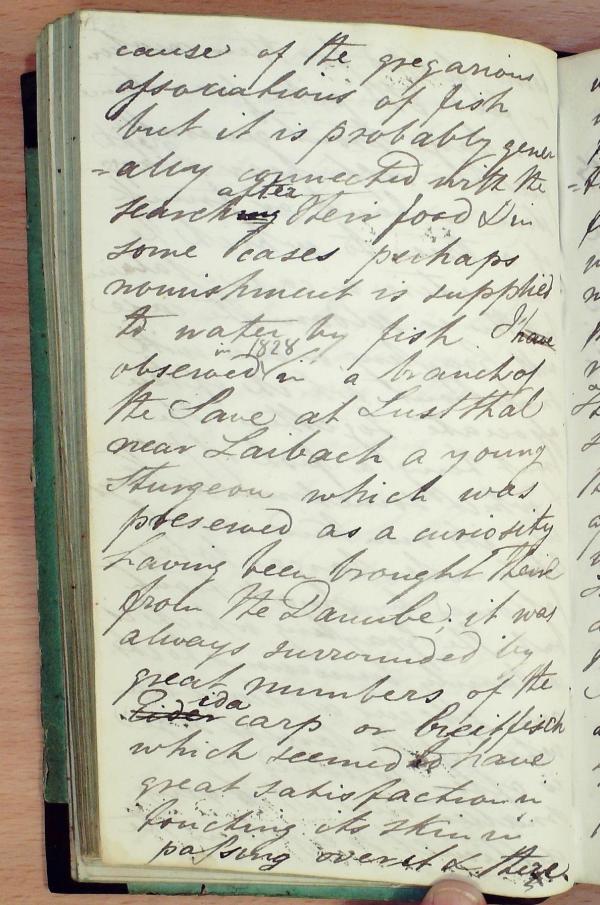 cause of the gregarious
associations of fish
but it is probably gener
=ally connected with the
after
searching their food & in
some cases perhaps
nourishment is supplied
to water by fish I have
in 1828
observed in a branch of
the Save at Lustthal
near Laibach a young
sturgeon which was
preserved as a curiosity
having been brought there
from the Danube; it was
always surrounded by
great numbers of the
ida
carp or
which seemed to have
great satisfaction in
touching its skin in
passing over it & there